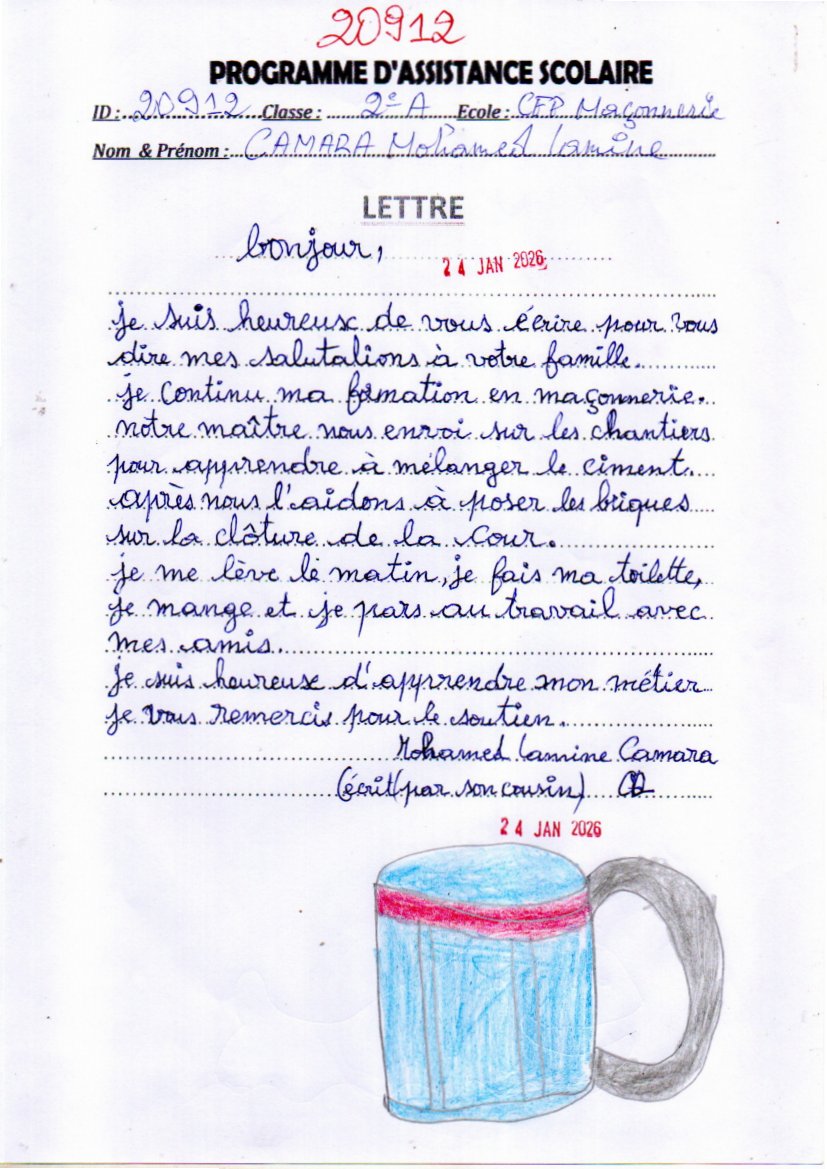 20912
PROGRAMME D'ASSISTANCE SCOLAIRE
ID : 20912 Classe : 2e A Ecole : CFP Maçonnerie
Nom & Prénom : CAMARA Mohamed Lamine
LETTRE
bonjour,
24 JAN 2026
je suis heureuse de vous écrire pour vous
dire mes salutalions à votre famille.
je continu ma formation en maçonnerie.
notre maître nous envoi sur les chantiers
pour apprendre à mélanger le ciment.
après nous l'aidons à poser les briques
sur la clôture de la cour.
je me lève le matin, je fais ma toilette,
je mange et je pars au travail avec
mes amis.
je suis heureuse d'apprendre mon métier
je vous remercis pour le soutien.
Mohamed Lamine Camara
(écrit(par son cousin)
24 JAN 2026